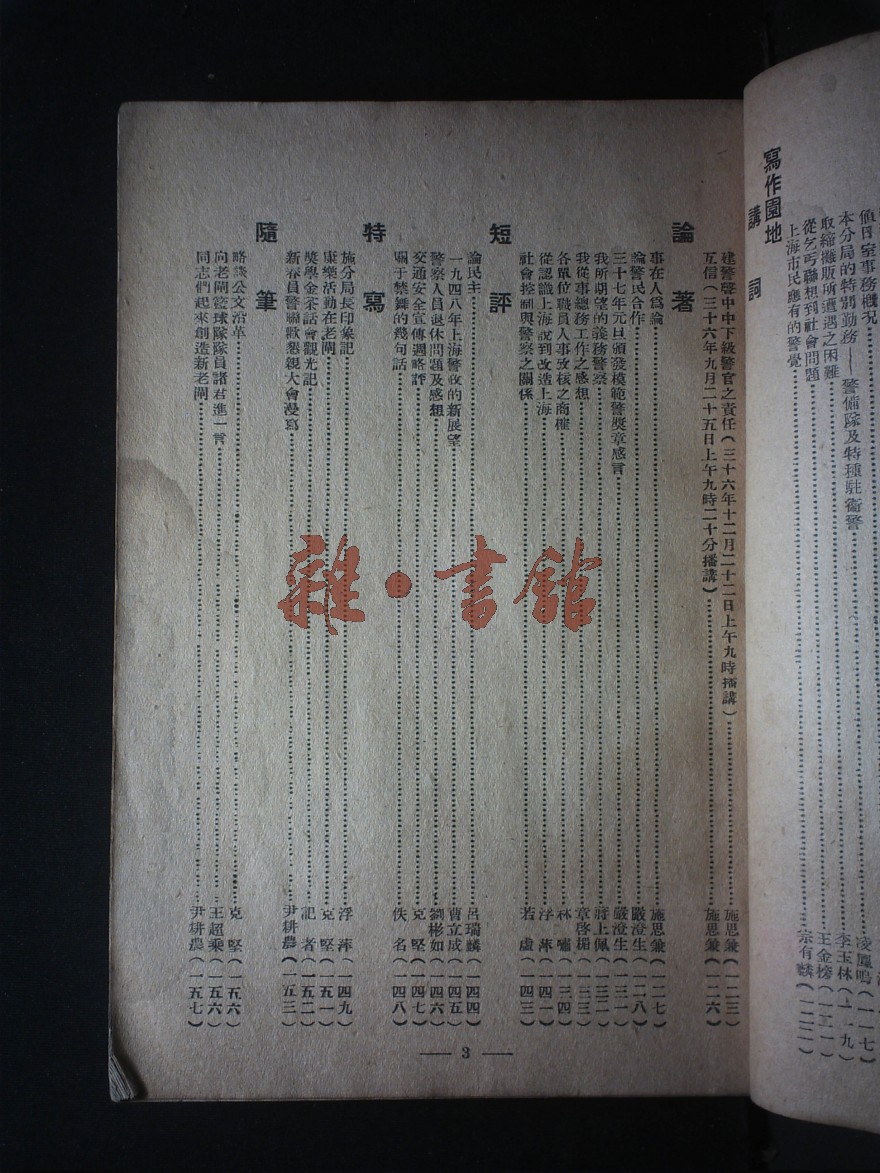 偵日室事務概況
凌鳳鳴(一一七)
本分局的特別勤務——警備隊及特種駐衞警
李玉林(一一九)
取締攤販所遭遇之困難
從乞丐聯想到社會問題
王金榜(一二一)
上海市民應有的警覺
宗有麟(一二二)
寫作園地
講詞
建警聲中中下級警官之責任(三十六年十二月二十二日上午九時播講)施思兼(一二三)
互信(三十六年九月二十五日上午九時二十分播講)施思兼(一二六)
論著
事在人爲論施思兼(一二七)
論警民合作嚴澄生(一二八)
三十七年元旦頒發模範警獎章感言嚴澄生(一三一)
我所期望的義務警察蔣上佩(一三二)
我從事總務工作之感想章啓楣(一三三)
各單位職員人事攷核之商榷林嘯(一三四)
從認識上海說到改造上海浮萍(一四一)
社會控制與警察之關係若虛(一四三)
短評
論民主呂瑞麟(一四四)
一九四八年上海警政的新展望曹立成(一四五)
警察人員退休問題及感想劉彬如(一四六)
交通安全宣傳週略評克堅(一四七)
關于禁舞的幾句話佚名(一四八)
特寫
施分局長印象記浮萍(一四九)
康樂活動在老閘克堅(一五一)
獎學金茶話會觀光記記者(一五二)
新春員警聯歡懇親大會漫寫尹耕農(一五三)
隨筆
略談公文沿革克堅(一五六)
向老閘籃球隊隊員諸君進一言王超乘(一五六)
同志們起來創造新老閘尹耕農(一五七)
— 3 —
雜·書館